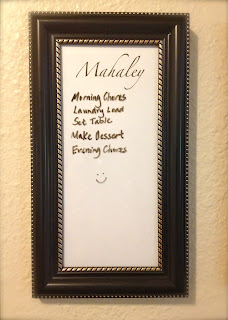 Mahaley
Morning Chores
Laundry Load
Set Table
Make Dessert
Evening Chores